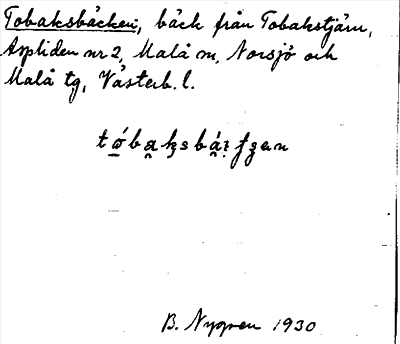 Tobaksbäcken, bäck från Tobakstjärn,
Aspliden nr 2, Malå sn, Norsjö och
Malå tg, Västerb. l.
B. Nygren 1930